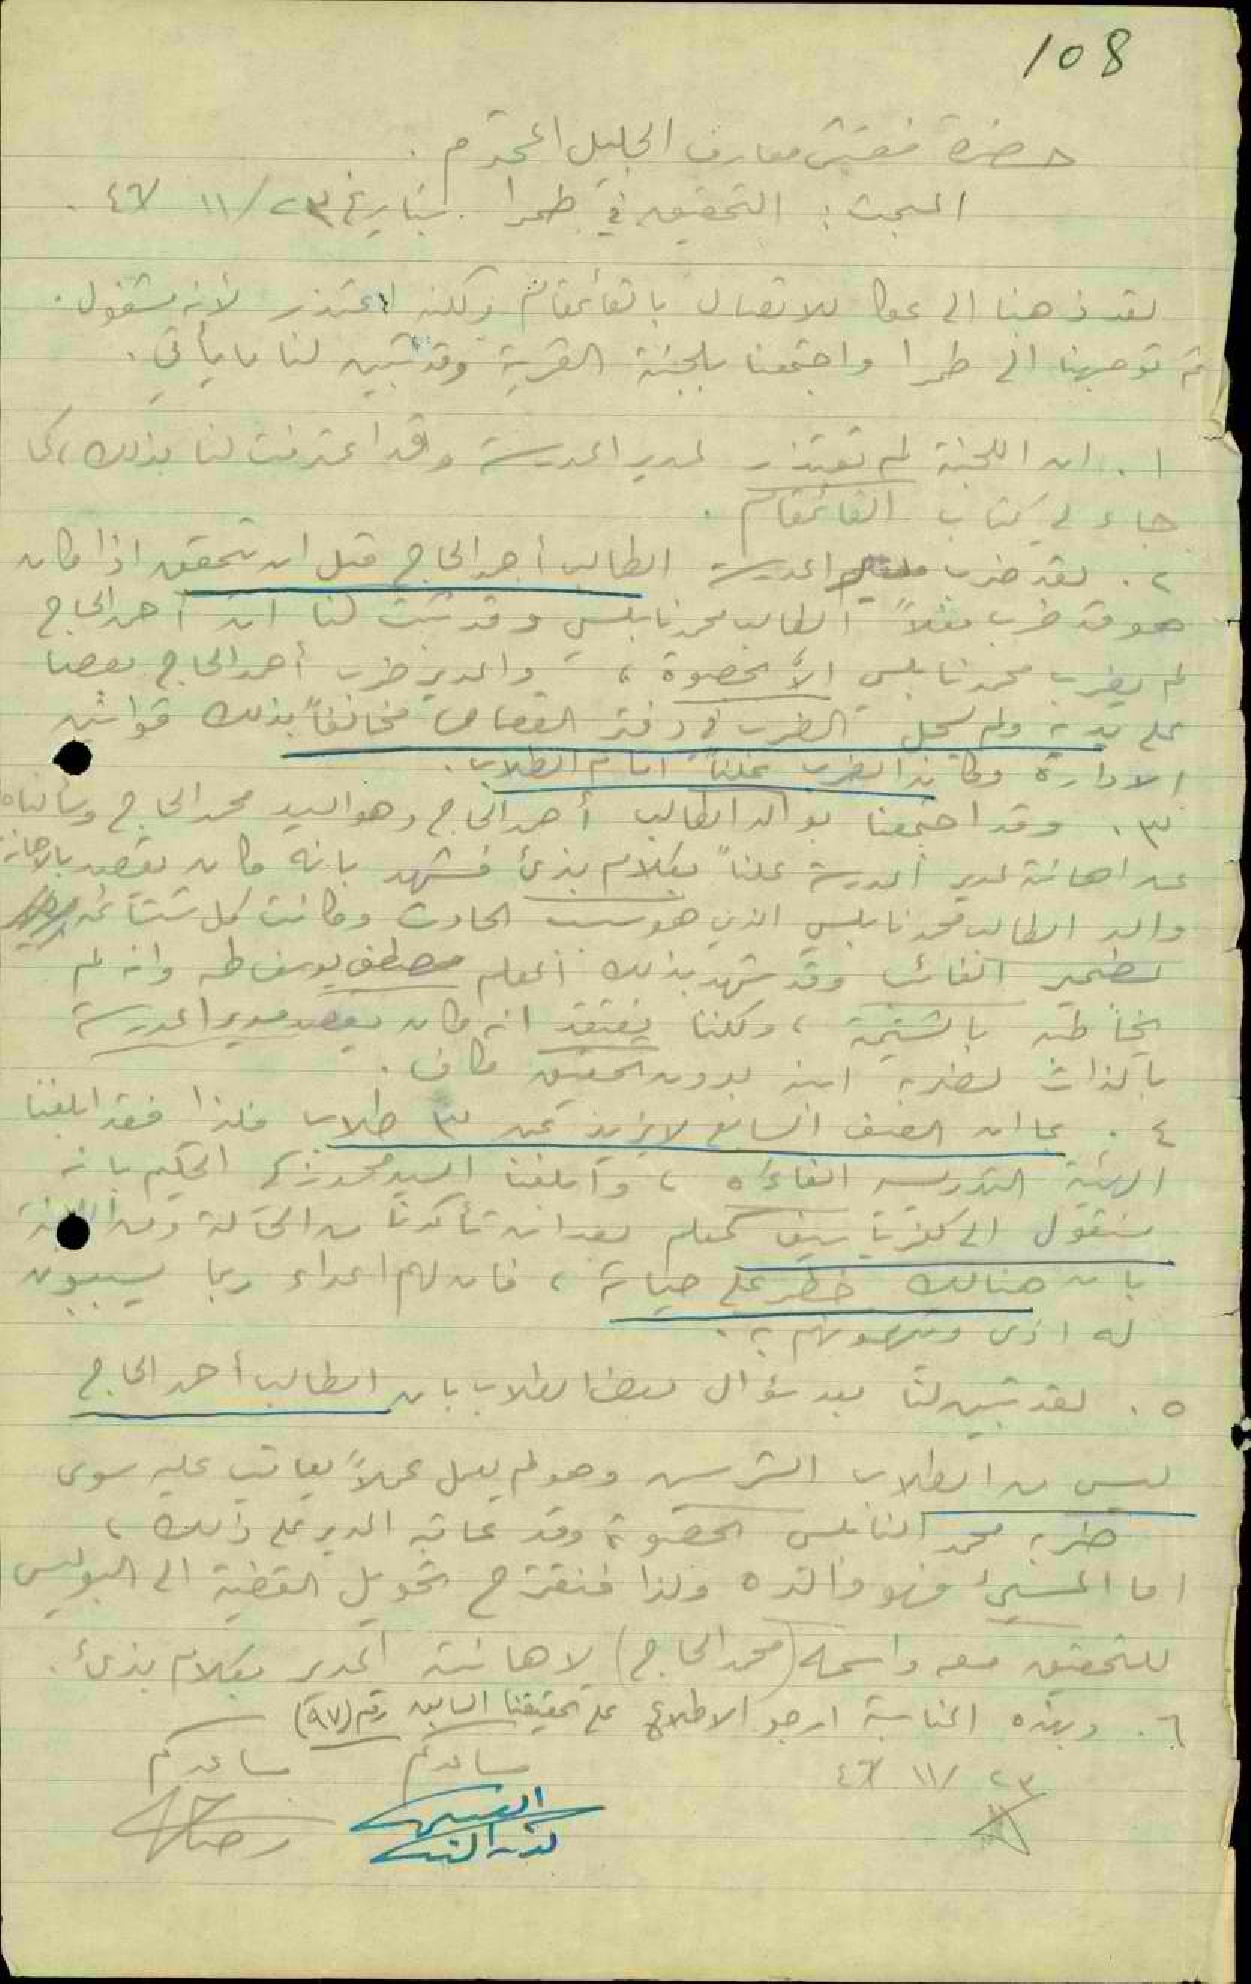 108
حضرة مفتش معارف الجليل المحترم .
المبحث : التحقيق في طمرا بتاريخ ٢٣/ ١١ ٤٦ .
لقد ذهبنا الى عكا للاتصال بالقائمقام ولكنه اعتذر لأنه مشغول .
ثم توجهنا الى طمرا واجتمعنا بلجنة القرية وقد تبين لنا ما يأتي .
١ . ان اللجنة لم تعتذر لمدير المدرسة وقد اعترفت لنا بذلك ، كما
جاء في كتاب القائمقام .
٢ . لقد ضرب المدرسة الطالب أحمد الحاج قبل ان يتحقق اذا كان
هو قد ضرب مثلاً الطالب محمد نابلسي وقد ثبت لنا ان أحمد الحاج
لم يضرب محمد نابلسي الا بحصوة ، والمدير ضرب أحمد الحاج بعصا
على يديه ولم يسجل الضرب في دفتر القصاص مخالفاً بذلك قوانين
الادارة وكان الضرب علناً امام الطلاب .
٣ . وقد اجتمعنا بوالد الطالب أحمد الحاج وهو السيد محمد الحاج وسألناه
عن اهانته لمدير المدرسة علناً بكلام بذئ فشهد بانه كان يقصد بالاهانة
والد الطالب محمد نابلسي الذي هو سبب الحادث وكانت كل شتائمه
بضمير الغائب وقد شهد بذلك المعلم مصطفى يوسف طه وانه لم
يخاطبه بالشتيمة ، ولكننا نعتقد انه كان يقصد مدير المدرسة
بالذات لضربه ابنه بدون تحقيق كاف .
٤ . بما ان الصف السابع لا يزيد عن ٣ طلاب فلذا فقد ابلغنا
الهيئة التدريسية الغاءه ، وابلغنا السيد محمد زكي الحكيم بانه
منقول الى كفر ياسيف كمعلم بعد ان تأكدنا من الحالة ومن اللجنة
بان هنالك خطر على حياته ، فان لهم اعداء ربما يسببون
له اذى ويتهمونهم به .
٥ . لقد تبين لنا بعد سؤال بعض الطلاب بان الطالب أحمد الحاج
ليس من الطلاب الشرسين وهو لم يعمل عملاً يعاقب عليه سوى
ضربه محمد النابلسي بحصوة وقد عاقبه المدير على ذلك ،
اما المسيئ فهو والده ولذا فنقترح تحويل القضية الى البوليس
للتحقيق معه واسمه (محمد الحاج) لاهانته المدير بكلام بذئ .
٦ . وبهذه المناسبة ارجو الاطلاع على تحقيقنا السابق رقم (٩٧)
مساعدكم مساعدكم
٢٣ / ١١ ٤٦